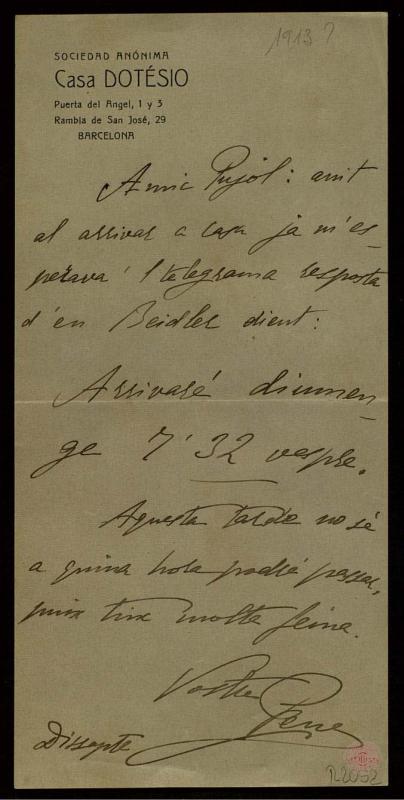 1913?
SOCIEDAD ANÓNIMA
Casa DOTÉSIO
Puerta del Angel, 1 y 3
Rambla de San José, 29
BARCELONA
Amic Pujol: anit
al arrivar a casa ja m'es-
perava 'l telegrama resposta
d'en Beidler dient:
Arrivaré diumen-
ge 7'32 vespre.
Aquesta tarde no sé
a quina hora podré passar,
puix tinx molta feina.
Vostre
Pena
Dissapte